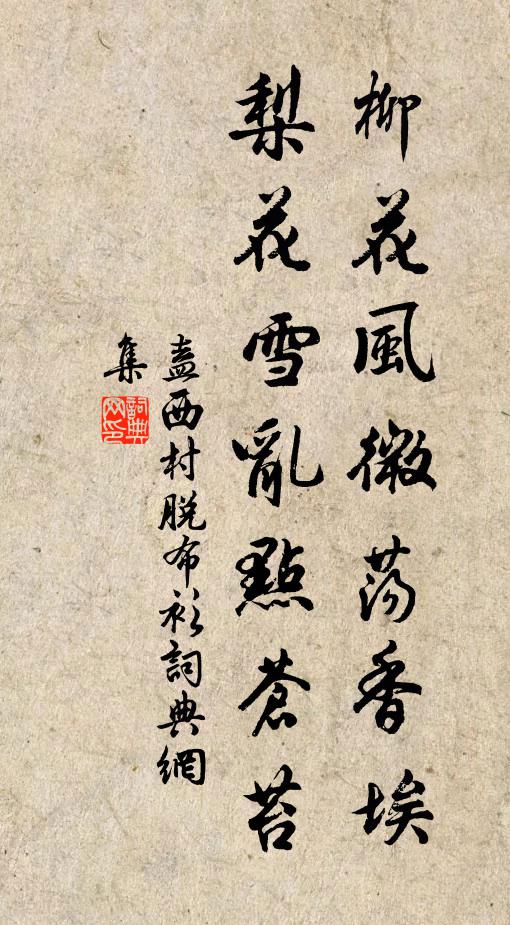 柳花風微蕩香埃
梨花雪亂點蒼苔
盍西村脫布衫詞典網
集
詞典
网印